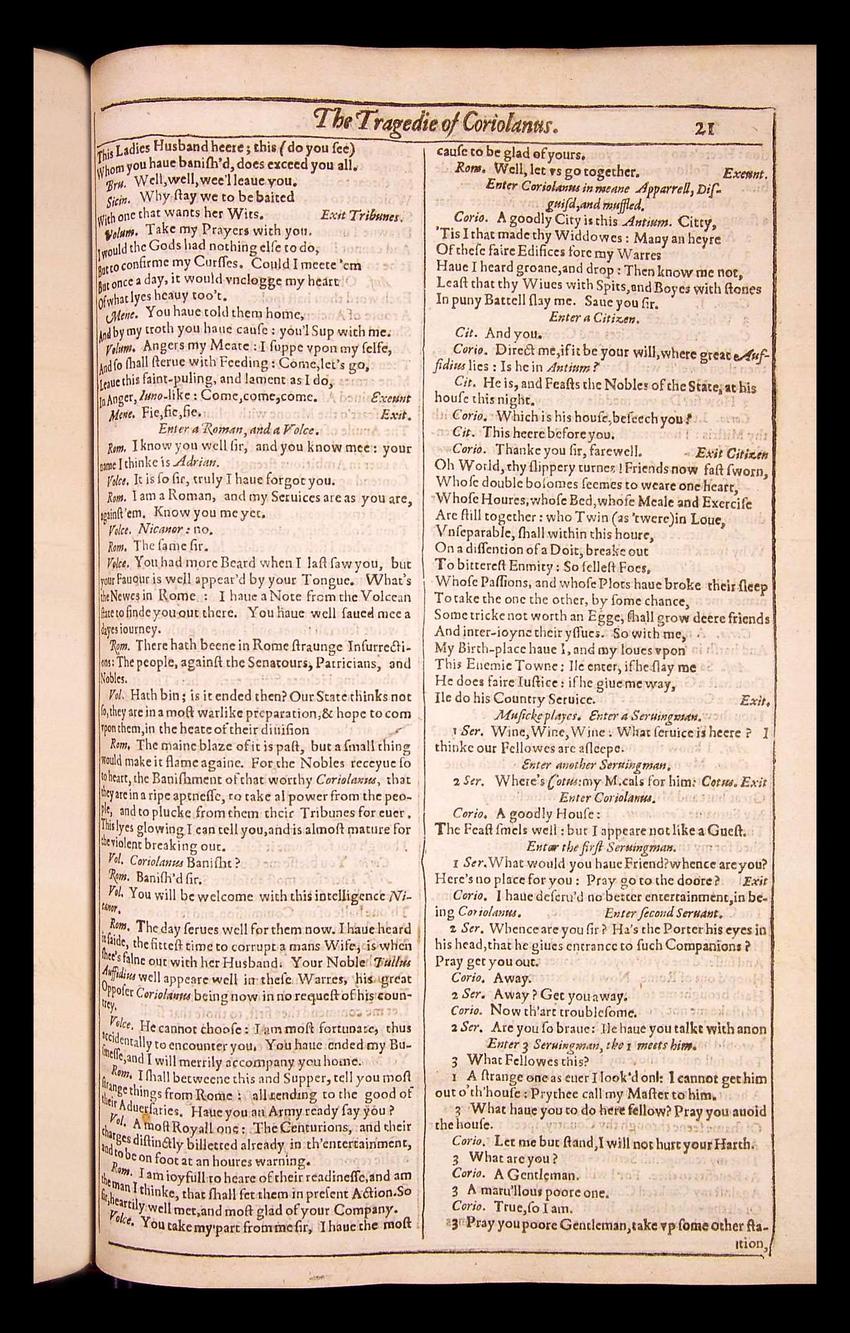 The Tragedie of Coriolanus. 21
This Ladies Husband heere; this (do you see)
Whom you haue banish'd, does exceed you all.
Bru. Well, well, wee'l leaue you.
Sicin. Why stay we to be baited
With one that wants her Wits. Exit Tribunes.
Volum. Take my Prayers with you.
I would the Gods had nothing else to do,
But to confirme my Cursses. Could I meete 'em
But once a day, it would vnclogge my heart
Of what lyes heauy too't.
Mene. You haue told them home,
And by my troth you haue cause: you'l Sup with me.
Volum. Angers my Meate: I suppe vpon my selfe,
And so shall sterue with Feeding: Come, let's go,
Leaue this faint-puling, and lament as I do,
In Anger, Iuno-like: Come, come, come. Exeunt
Mene. Fie, fie, fie. Exit.
Enter a Roman, and a Volce.
Rom. I know you well sir, and you know mee: your
name I thinke is Adrian.
Volce. It is so sir, truly I haue forgot you.
Rom. I am a Roman, and my Seruices are as you are,
against 'em. Know you me yet.
Volce. Nicanor: no.
Rom. The same sir.
Volce. You had more Beard when I last saw you, but
your Fauour is well appear'd by your Tongue. What's
the Newes in Rome: I haue a Note from the Volcean
state to finde you out there. You haue well saued mee a
dayes iourney.
Rom. There hath beene in Rome straunge Insurrecti-
ons: The people, against the Senatours, Patricians, and
Nobles.
Vol. Hath bin; is it ended then? Our State thinks not
so, they are in a most warlike preparation, & hope to com
vpon them, in the heate of their diuision
Rom. The maine blaze of it is past, but a small thing
would make it flame againe. For the Nobles receyue so
to heart, the Banishment of that worthy Coriolanus, that
they are in a ripe aptnesse, to take al power from the peo-
ple, and to plucke from them their Tribunes for euer.
This lyes glowing I can tell you, and is almost mature for
the violent breaking out.
Vol. Coriolanus Banisht?
Rom. Banish'd sir.
Vol. You will be welcome with this intelligence Ni-
canor.
Rom. The day serues well for them now. I haue heard
it saide, the fittest time to corrupt a mans Wife, is when
shee's falne out with her Husband. Your Noble Tullus
Auffidius well appeare well in these Warres, his great
Opposer Coriolanus being now in no request of his coun-
trey.
Volce. He cannot choose: I am most fortunate, thus
accidentally to encounter you. You haue ended my Bu-
sinesse, and I will merrily accompany you home.
Rom. I shall betweene this and Supper, tell you most
strange things from Rome: all tending to the good of
their Aduersaries. Haue you an Army ready say you?
Vol. A most Royall one: The Centurions, and their
charges distinctly billetted already in th'entertainment,
and to be on foot at an houres warning.
Rom. I am ioyfull to heare of their readinesse, and am
the man I thinke, that shall set them in present Action. So
sir, heartily well met, and most glad of your Company.
Volce. You take my part from me sir, I haue the most
cause to be glad of yours.
Rom. Well, let vs go together. Exeunt.
Enter Coriolanus in meane Apparrell, Dis-
guisd, and muffled.
Corio. A goodly City is this Antium. Citty,
'Tis I that made thy Widdowes: Many an heyre
Of these faire Edifices fore my Warres
Haue I heard groane, and drop: Then know me not,
Least that thy Wiues with Spits, and Boyes with stones
In puny Battell slay me. Saue you sir.
Enter a Citizen.
Cit. And you.
Corio. Direct me, if it be your will, where great Auf-
fidius lies: Is he in Antium?
Cit. He is, and Feasts the Nobles of the State, at his
house this night.
Corio. Which is his house, beseech you?
Cit. This heere before you.
Corio. Thanke you sir, farewell. Exit Citizen
Oh World, thy slippery turnes! Friends now fast sworn,
Whose double bosomes seemes to weare one heart,
Whose Houres, whose Bed, whose Meale and Exercise
Are still together: who Twin (as 'twere) in Loue,
Vnseparable, shall within this houre,
On a dissention of a Doit, breake out
To bitterest Enmity: So fellest Foes,
Whose Passions, and whose Plots haue broke their sleep
To take the one the other, by some chance,
Some tricke not worth an Egge, shall grow deere friends
And inter-ioyne their yssues. So with me,
My Birth-place haue I, and my loues vpon
This Enemie Towne: Ile enter, if he slay me
He does faire Iustice: if he giue me way,
Ile do his Country Seruice. Exit.
Musicke playes. Enter a Seruingman.
1 Ser. Wine, Wine, Wine: What seruice is heere? I
thinke our Fellowes are asleepe.
Enter another Seruingman.
2 Ser. Where's Cotus: my M. cals for him: Cotus. Exit
Enter Coriolanus.
Corio. A goodly House:
The Feast smels well: but I appeare not like a Guest.
Enter the first Seruingman.
1 Ser. What would you haue Friend? whence are you?
Here's no place for you: Pray go to the doore? Exit
Corio. I haue deseru'd no better entertainment, in be-
ing Coriolanus. Enter second Seruant.
2 Ser. Whence are you sir? Ha's the Porter his eyes in
his head, that he giues entrance to such Companions?
Pray get you out.
Corio. Away.
2 Ser. Away? Get you away.
Corio. Now th'art troublesome.
2 Ser. Are you so braue: Ile haue you talkt with anon
Enter 3 Seruingman, the 1 meets him.
3 What Fellowes this?
1 A strange one as euer I look'd on: I cannot get him
out o'th'house: Prythee call my Master to him.
3 What haue you to do here fellow? Pray you auoid
the house.
Corio. Let me but stand, I will not hurt your Harth.
3 What are you?
Corio. A Gentleman.
3 A maru'llous poore one.
Corio. True, so I am.
3 Pray you poore Gentleman, take vp some other sta-
ition,